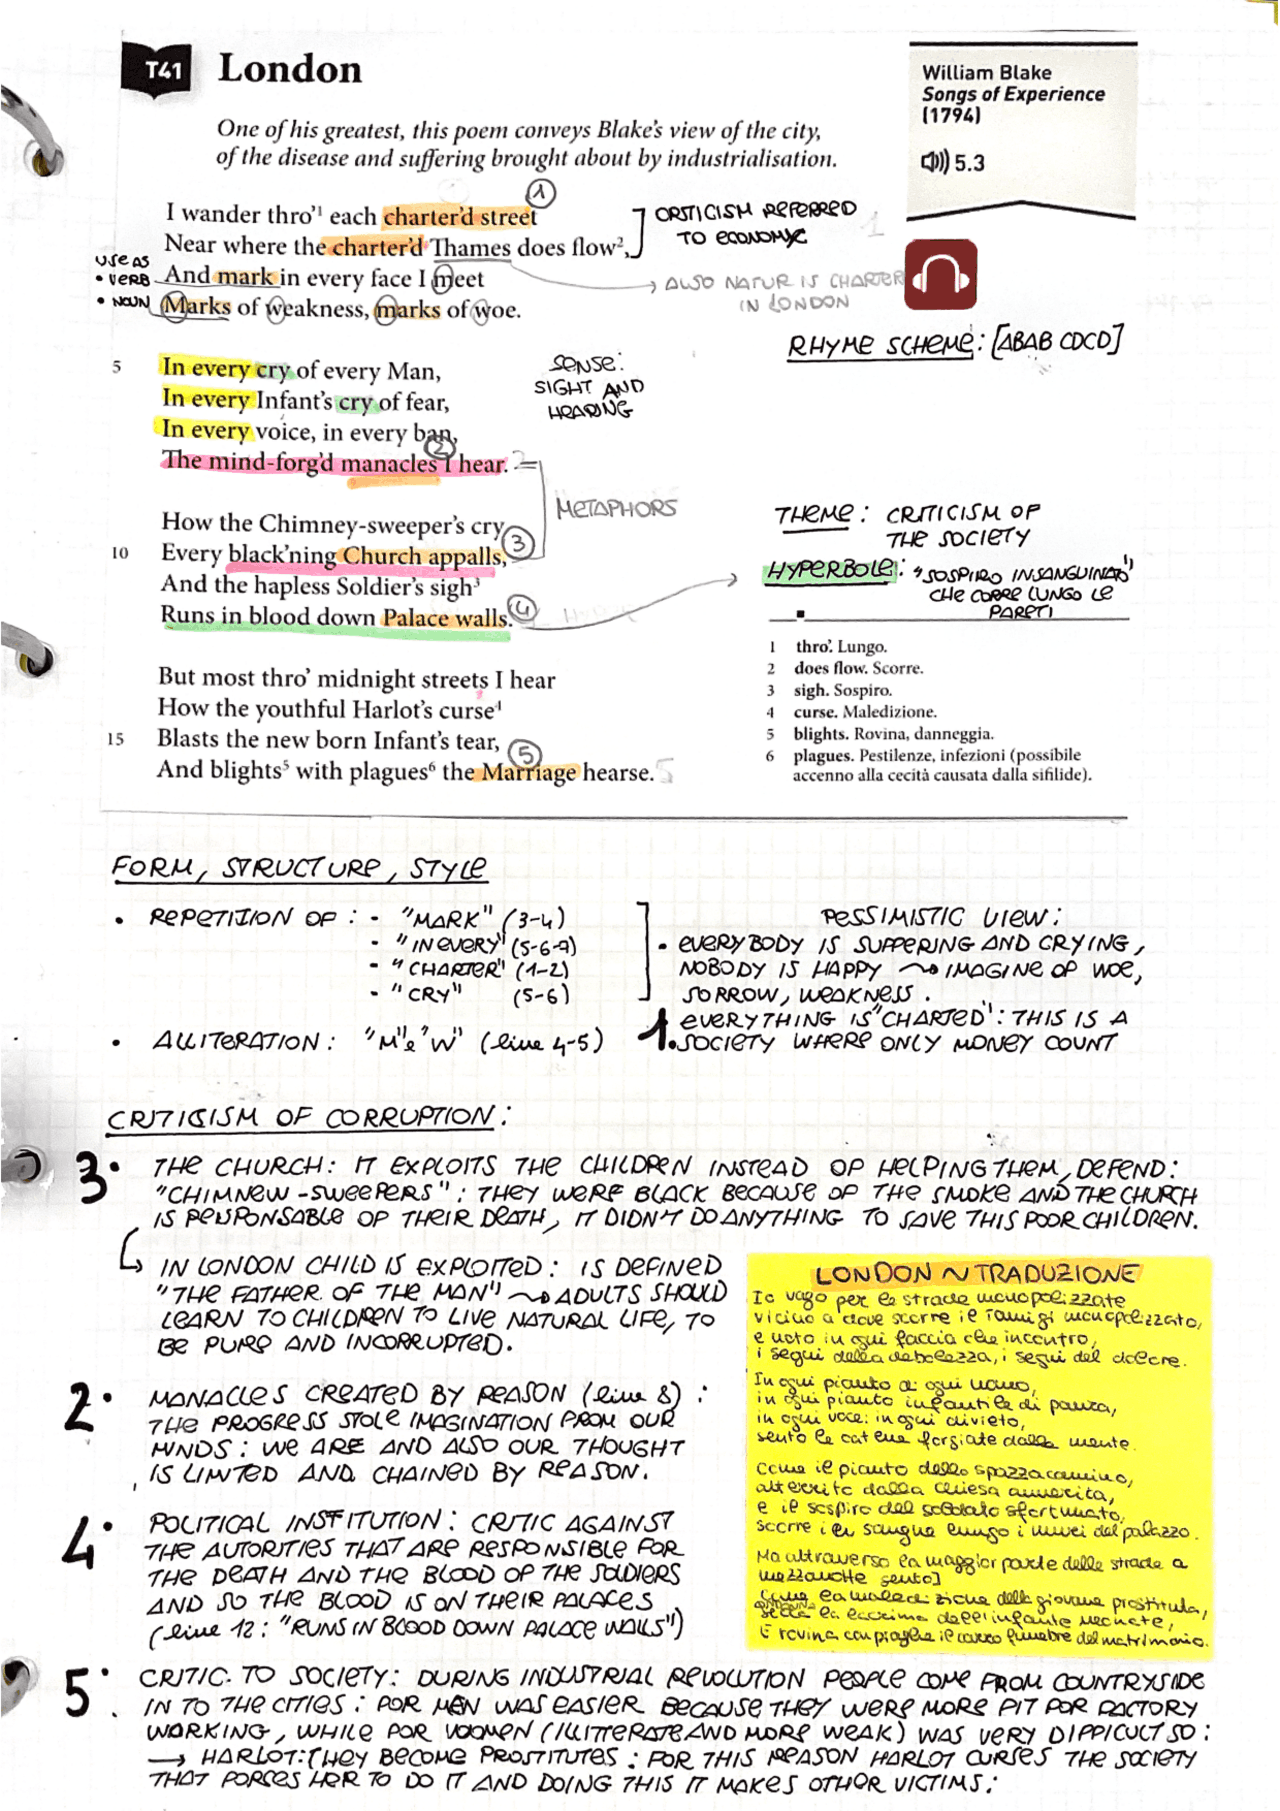 T41 London
William Blake
Songs of Experience
(1794)
5.3
One of his greatest, this poem conveys Blake's view of the city,
of the disease and suffering brought about by industrialisation.
1
I wander thro'1 each charter'd street
Near where the charter'd Thames does flow2,
And mark in every face I meet
Marks of weakness, marks of woe.
USE AS
• VERB
• NOUN
CRITICISM REFERRED
TO ECONOMIC 1
ALSO NATUR IS CHARTER
IN LONDON
RHYME SCHEME: [ABAB CDCD]
5 In every cry of every Man,
In every Infant's cry of fear,
In every voice, in every ban,
The mind-forg'd manacles I hear.
2
SENSE:
SIGHT AND
HEARING
METAPHORS
How the Chimney-sweeper's cry
10 Every black'ning Church appalls,
And the hapless Soldier's sigh3
Runs in blood down Palace walls.
3
4
THEME: CRITICISM OF
THE SOCIETY
HYPERBOLE: "SOSPIRO INSANGUINATO"
CHE CORRE LUNGO LE
PARETI
But most thro' midnight streets I hear
How the youthful Harlot's curse4
15 Blasts the new born Infant's tear,
And blights5 with plagues6 the Marriage hearse.
5
5
1 thro'. Lungo.
2 does flow. Scorre.
3 sigh. Sospiro.
4 curse. Maledizione.
5 blights. Rovina, danneggia.
6 plagues. Pestilenze, infezioni (possibile
accenno alla cecità causata dalla sifilide).
FORM, STRUCTURE, STYLE
• REPETITION OF: - "MARK" (3-4)
- "IN EVERY" (5-6-7)
- "CHARTER" (1-2)
- "CRY" (5-6)
• ALLITERATION: "M" e "W" (line 4-5)
PESSIMISTIC VIEW:
• EVERYBODY IS SUFFERING AND CRYING,
NOBODY IS HAPPY ~> IMAGINE OF WOE,
SORROW, WEAKNESS.
1. EVERYTHING IS "CHARTED": THIS IS A
SOCIETY WHERE ONLY MONEY COUNT
CRITICISM OF CORRUPTION:
3• THE CHURCH: IT EXPLOITS THE CHILDREN INSTEAD OF HELPING THEM, DEFEND:
"CHIMNEW-SWEEPERS": THEY WERE BLACK BECAUSE OF THE SMOKE AND THE CHURCH
IS RESPONSABLE OF THEIR DEATH, IT DIDN'T DO ANYTHING TO SAVE THIS POOR CHILDREN.
IN LONDON CHILD IS EXPLOITED: IS DEFINED
"THE FATHER OF THE MAN" ~> ADULTS SHOULD
LEARN TO CHILDREN TO LIVE NATURAL LIFE, TO
BE PURE AND INCORRUPTED.
2• MANACLES CREATED BY REASON (line 8):
THE PROGRESS STOLE IMAGINATION FROM OUR
MINDS: WE ARE AND ALSO OUR THOUGHT
IS LIMITED AND CHAINED BY REASON.
4• POLITICAL INSTITUTION: CRITIC AGAINST
THE AUTORITIES THAT ARE RESPONSIBLE FOR
THE DEATH AND THE BLOOD OF THE SOLDIERS
AND SO THE BLOOD IS ON THEIR PALACES
(line 12: "RUNS IN BLOOD DOWN PALACE WALLS")
LONDON ~ TRADUZIONE
Io vago per le strade monopolizzate
vicino a dove scorre il Tamigi monopolizzato,
e noto in ogni faccia che incontro,
i segni della debolezza, i segni del dolore.
In ogni pianto di ogni uomo,
in ogni pianto infantile di paura,
in ogni voce: in ogni divieto,
sento le catene forgiate dalla mente.
Come il pianto dello spazzacamino,
atterrito dalla chiesa annerita,
e il sospiro del soldato sfortunato,
scorre in sangue lungo i muri del palazzo.
Ma attraverso la maggior parte delle strade a
mezzanotte sento
come la maledizione della giovane prostituta,
la lacrima dell'infante neonato,
E rovina con piaghe il carro funebre del matrimonio.
5• CRITIC TO SOCIETY: DURING INDUSTRIAL REVOLUTION PEOPLE COME FROM COUNTRYSIDE
IN TO THE CITIES: FOR MEN WAS EASIER BECAUSE THEY WERE MORE FIT FOR FACTORY
WORKING, WHILE FOR WOMEN (ILLITTERATE AND MORE WEAK) WAS VERY DIFFICULT SO:
→ HARLOT: THEY BECOME PROSTITUTES: FOR THIS REASON HARLOT CURSES THE SOCIETY
THAT FORCES HER TO DO IT AND DOING THIS IT MAKES OTHER VICTIMS: